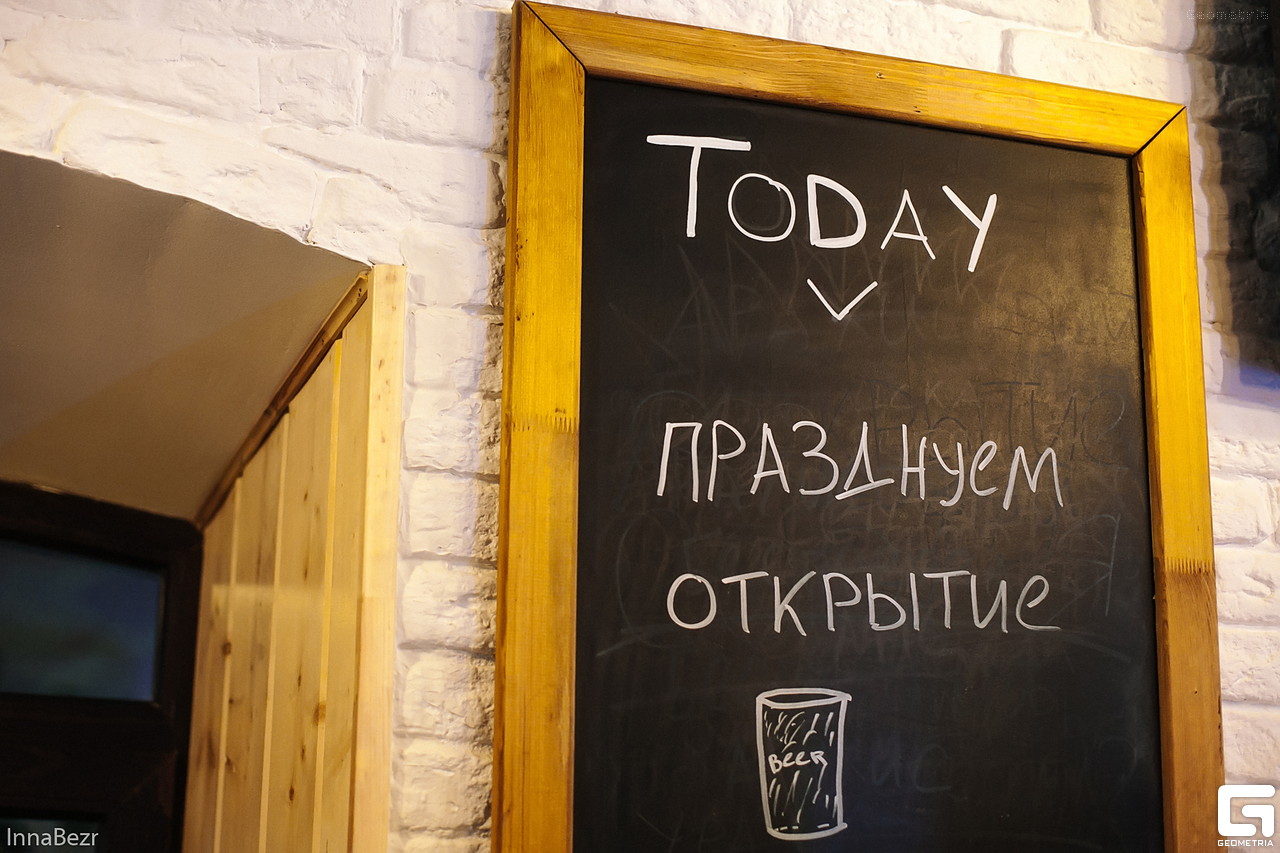 geometria
TODAY
ПРАЗДНУЕМ
ОТКРЫТИЕ
BEER
InnaBezr
GEOMETRIA